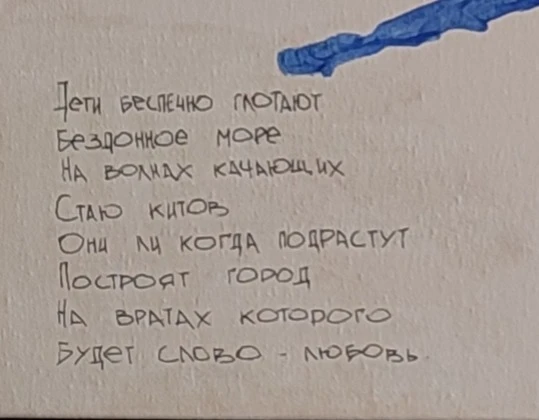 Дети беспечно глотают
Бездонное море
На волнах качающих
Стаю китов
Они ли когда подрастут
Построят город
На вратах которого
Будет слово - любовь.